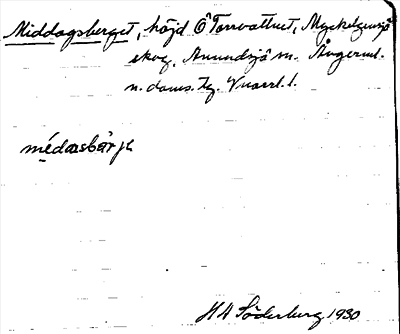 Middagsberget, höjd Ö Torrvattnet, Myckelgensjö
skog, Anundsjö sn. Ångerml.
n. doms. Tg. Vnorrl. l.
médasbärje
H H Söderberg 1930